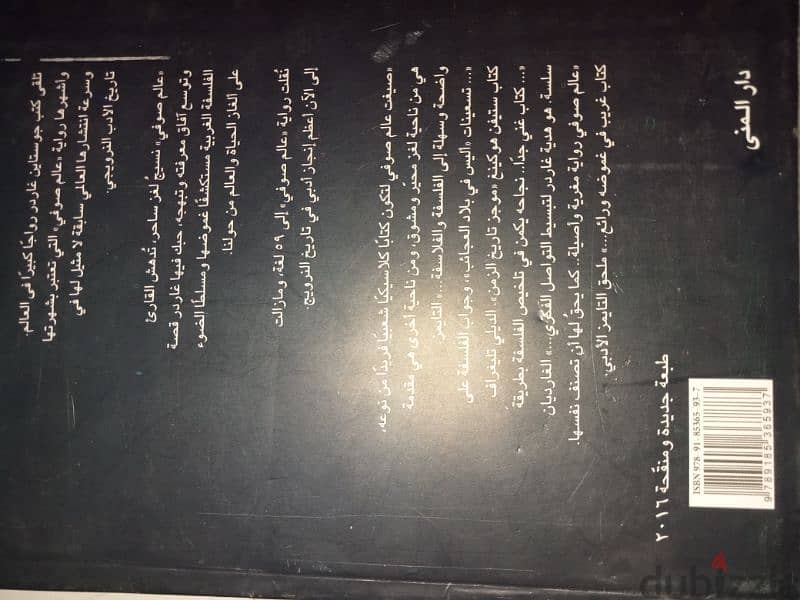 تلقى كتب جوستاين غاردر رواجًا كبيرًا في العالم.
وأشهرها رواية «عالم صوفي» التي تعتبر بشهرتها
وسرعة انتشارها العالمي سابقة لا مثيل لها في
تاريخ الأدب النرويجي.
«عالم صوفي» نسيجُ لغز ساحر، تُدهش القارئ
وتوسع آفاق معرفته وتبهجه، حبك فيها غاردر قصة
الفلسفة الغربية مستكشفًا غموضها ومسلطًا الضوء
على ألغاز الحياة والعالم من حولنا.
نُقلت رواية «عالم صوفي» إلى ٥٩ لغة، ومازالت
إلى الآن أعظم إنجاز أدبي في تاريخ النرويج.
«صيغت عالم صوفي لتكون كتابًا كلاسيكيًا شعبيًا فريدًا من نوعه،
هي من ناحية لغز محيّر ومشوق، ومن ناحية أخرى هي مقدمة
واضحة وسهلة إلى الفلسفة والفلاسفة...» التايمز.
«... تسعينات «أليس في بلاد العجائب»، وجواب الفلسفة على
كتاب ستيفن هوكينغ «موجز تاريخ الزمن». الديلي تليغراف
«... كتاب غني جدًا.. نجاحه يكمن في تلخيص الفلسفة بطريقة
سلسة. هو هدية غاردر لتبسيط التواصل الفكري...» الغارديان
«عالم صوفي رواية مغرية وأصيلة.. كما يحق لها أن تصنف نفسها.
كتاب غريب في غموضه ورائع...» ملحق التايمز الأدبي
طبعة جديدة ومنقّحة ٢٠١٦
دار المنى
ISBN 978-91-85365-93-7
9 789185 365937
dubizzle